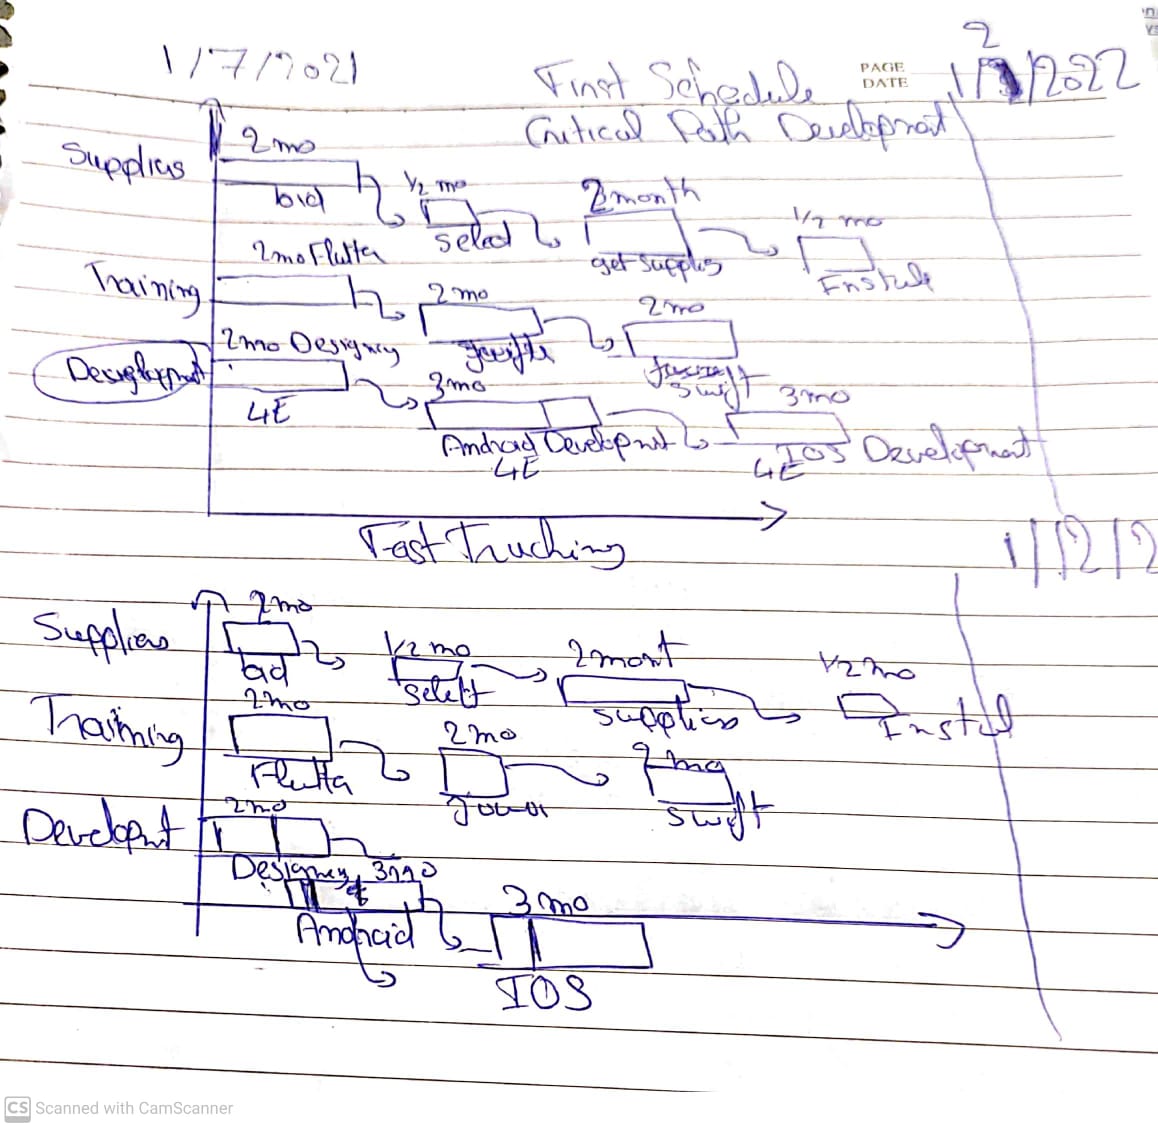 1/7/2021
2
First Schedule
PAGE
DATE
1/ /2022
Critical Path Development
Supplies
2mo
bid
1/2 mo
select
2month
get supplies
1/2 mo
Enstule
Training
2mo Flutter
2mo
2mo
swift
2mo Designey
4E
3mo
Android Development
4E
3mo
IOS Development
4E
Fast Truching
1/12/2
Supplies
2mo
bid
1/2 mo
select
2mont
supplies
1/2 mo
Enstull
Training
2mo
Flutta
2mo
2mo
swift
Developmt
2mo
Designey
3mo
Android
3mo
IOS
CS Scanned with CamScanner